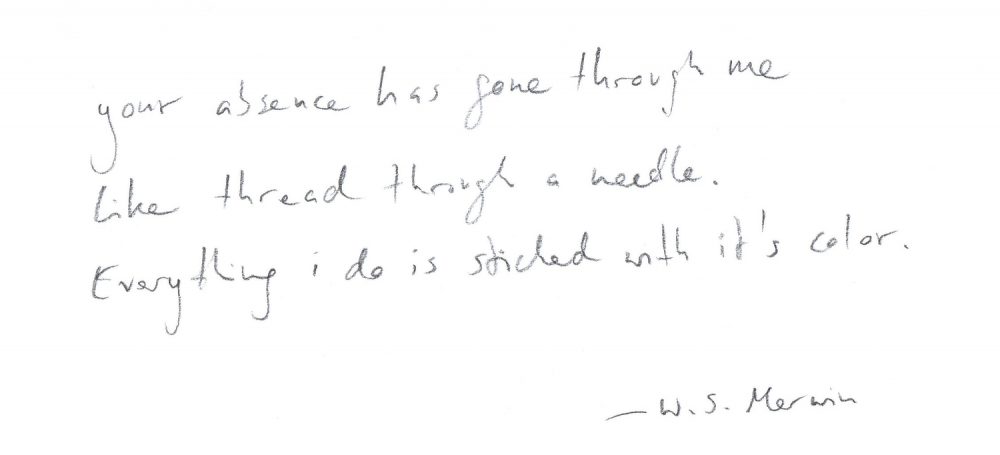 your absence has gone through me
Like thread through a needle.
Everything i do is sticked with it's color.
— W. S. Merwin